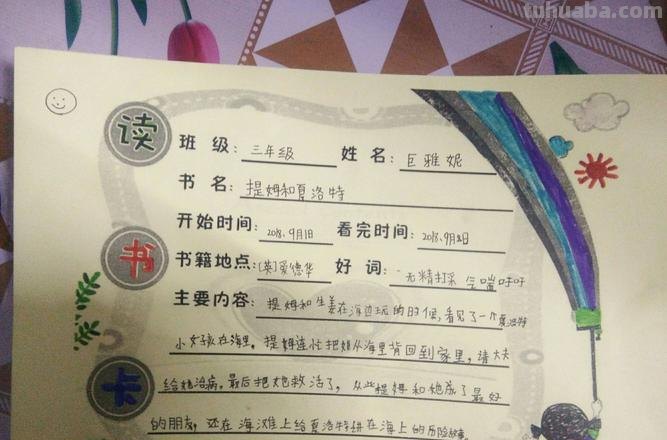 tuhuaba.com
读书卡
班级：三年级 姓名：巨雅妮
书名：提姆和夏洛特
开始时间：2018.9月1日 看完时间：2018.9月2日
书籍地点：[英]爱德华 好词：无精打采 气喘吁吁
主要内容：提姆和生姜在海边玩的时候，看见了一个夏洛特
小女孩在海里，提姆连忙把她从海里背回到家里，请大夫
给她治病，最后把她救活了，从些提姆和她成了最好
的朋友，还在海滩上给夏洛特讲在海上的历险故事。